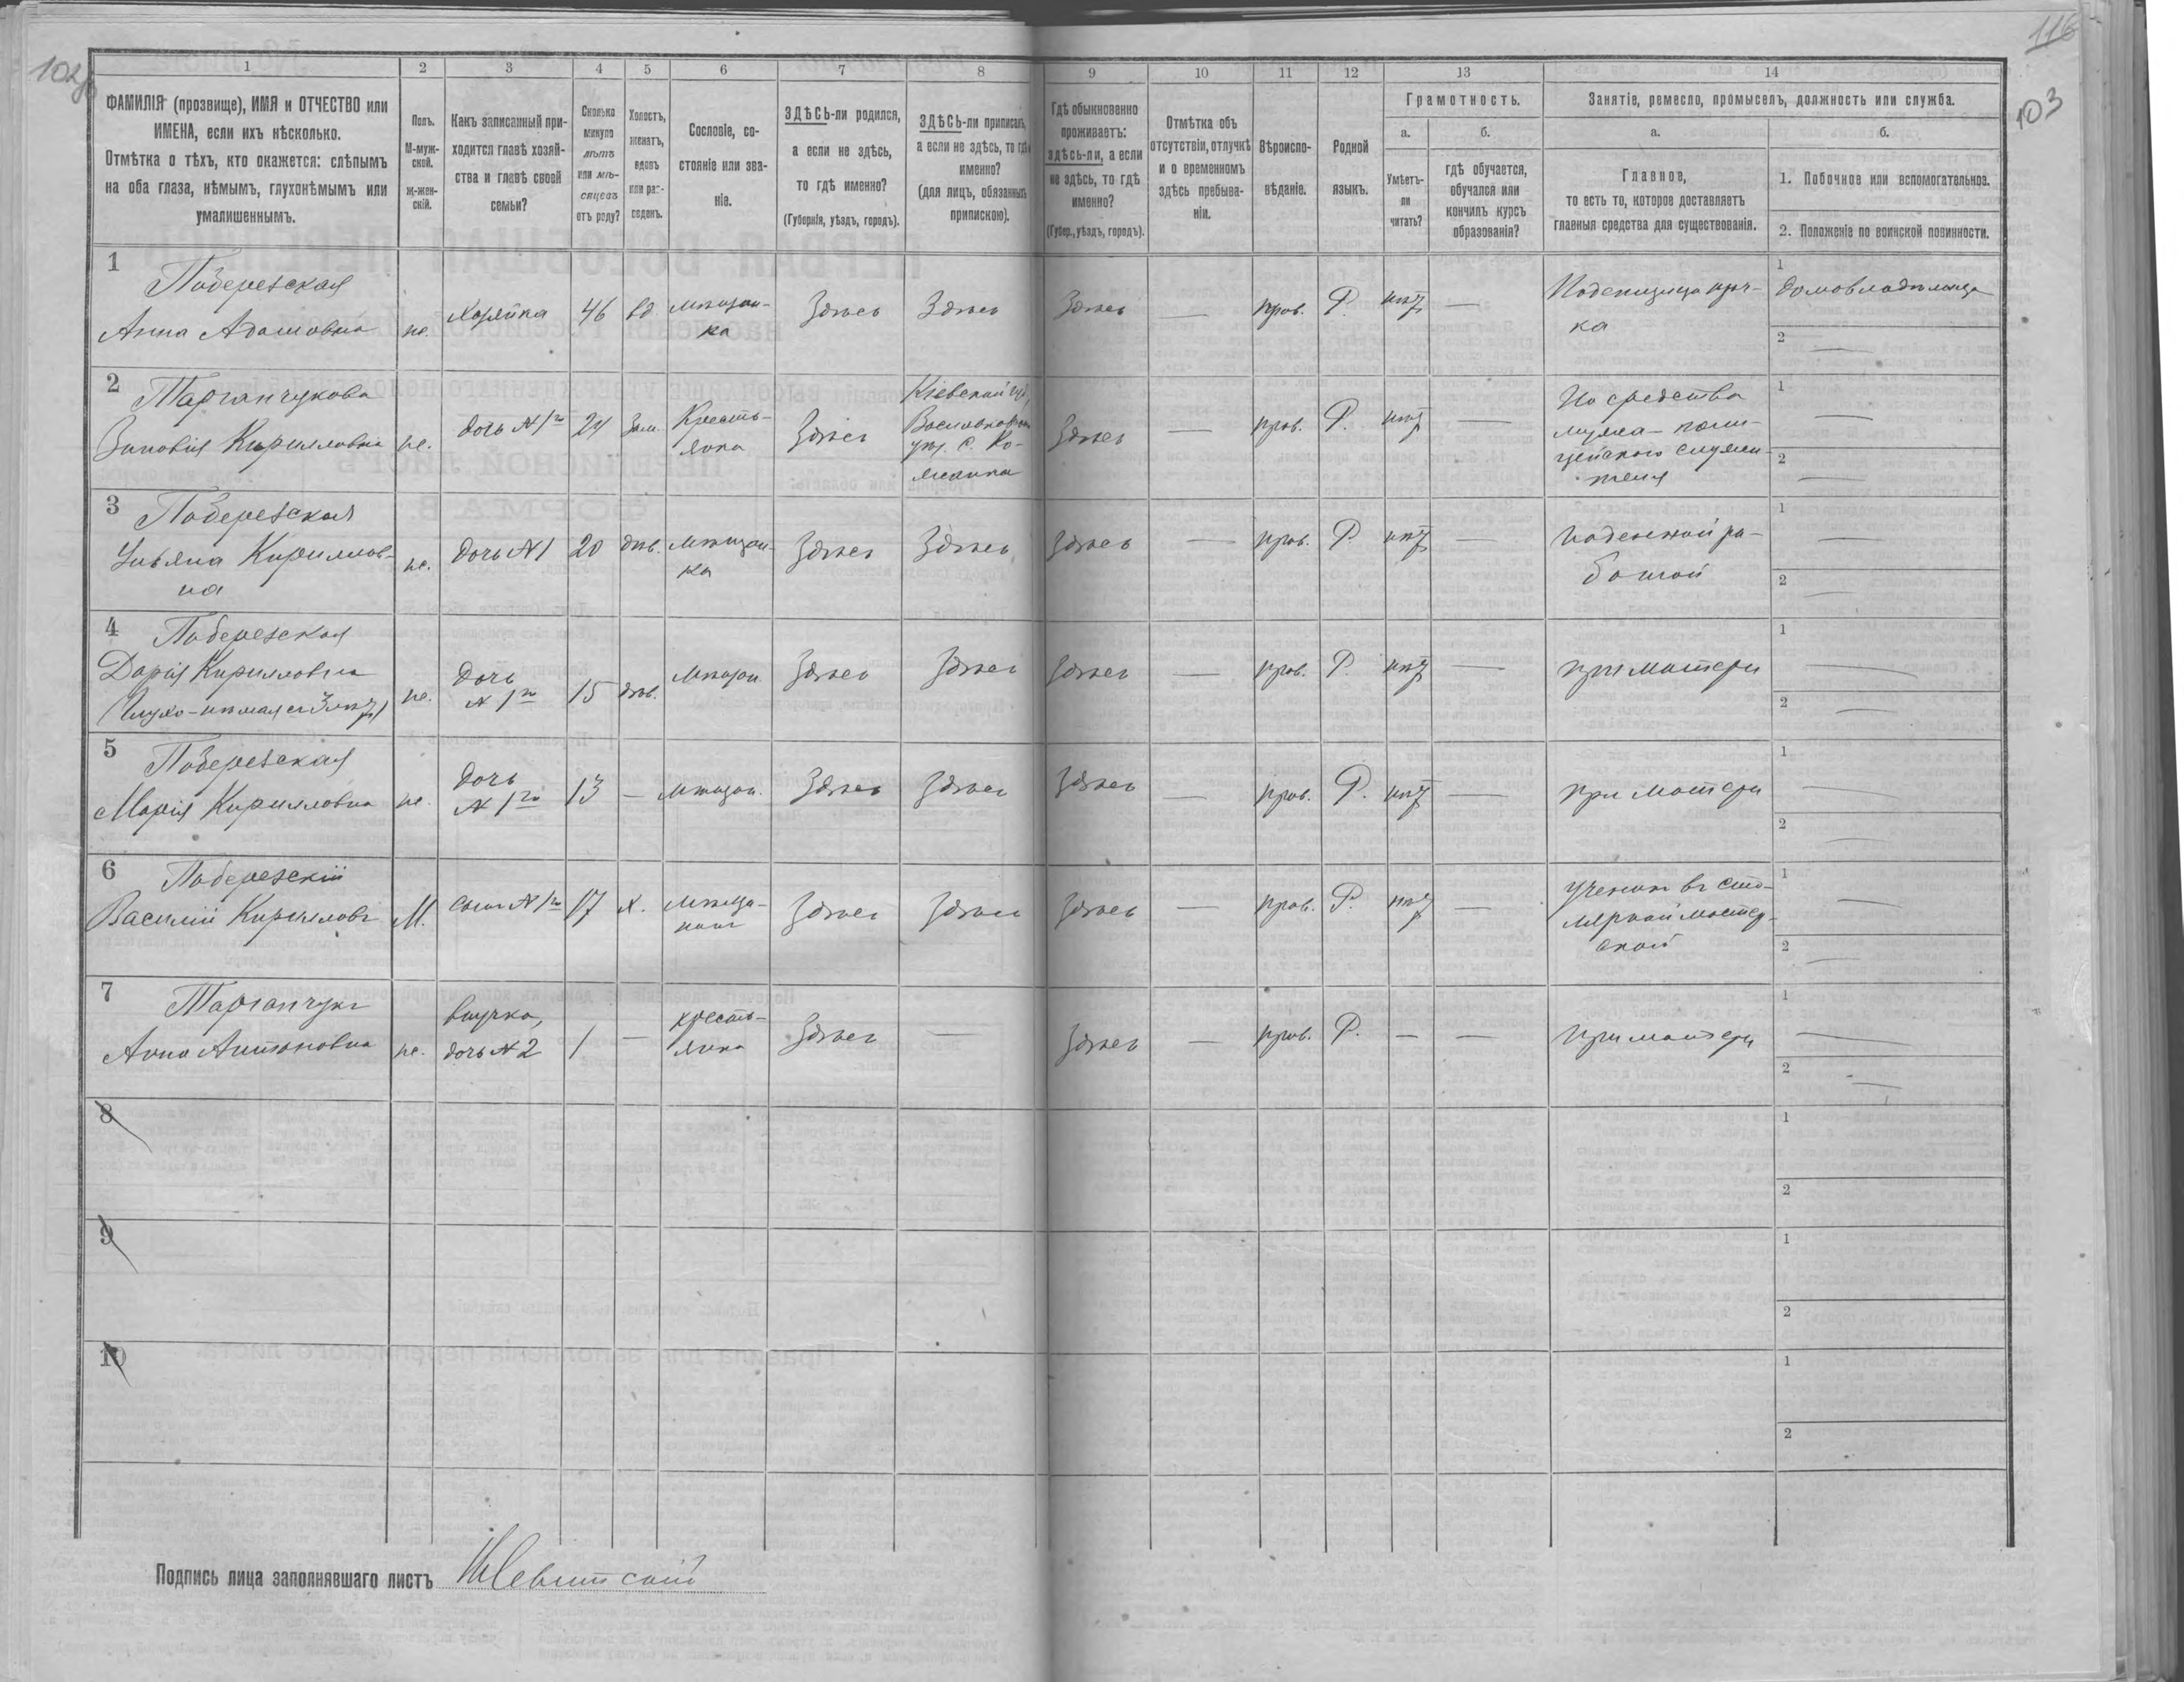 102об
116
103
1 2 3 4 5 6 7 8 9 10 11 12 13 14
ФАМИЛІЯ (прозвище), ИМЯ и ОТЧЕСТВО или
ИМЕНА, если ихъ нѣсколько.
Отмѣтка о тѣхъ, кто окажется: слѣпымъ
на оба глаза, нѣмымъ, глухонѣмымъ или
умалишеннымъ.
Полъ.
М-муж-
ской.
Ж-жен-
скій.
Какъ записанный при-
ходится главѣ хозяй-
ства и главѣ своей
семьи?
Сколько
минуло
лѣтъ
или мѣ-
сяцевъ
отъ роду?
Холостъ,
женатъ,
вдовъ
или раз-
веденъ.
Сословіе, со-
стояніе или зва-
ніе.
ЗДѢСЬ-ли родился,
а если не здѣсь,
то гдѣ именно?
(Губернія, уѣздъ, городъ).
ЗДѢСЬ-ли приписанъ,
а если не здѣсь, то гдѣ
именно?
(для лицъ, обязанныхъ
припискою).
Гдѣ обыкновенно
проживаетъ:
здѣсь-ли, а если
не здѣсь, то гдѣ
именно?
(Губер., уѣздъ, городъ).
Отмѣтка объ
отсутствіи, отлучкѣ
и о временномъ
здѣсь пребыва-
ніи.
Вѣроиспо-
вѣданіе.
Родной
языкъ.
Грамотность.
а.
Умѣетъ-
ли
читать?
б.
гдѣ обучается,
обучался или
кончилъ курсъ
образованія?
Занятіе, ремесло, промыселъ, должность или служба.
а.
Главное,
то есть то, которое доставляетъ
главныя средства для существованія.
б.
1. Побочное или вспомогательное.
2. Положеніе по воинской повинности.
1
Поберезская
Анна Адамовна
ж.
Хозяйка
46
вд.
мѣщан-
ка
Здѣсь
Здѣсь
Здѣсь
—
прав.
Р.
нѣтъ
—
Поденщица прач-
ка
1
домовладѣлица
2
—
2
Зиновія Кирилловна
ж.
дочь № 1го
24
Зам.
Кресть-
янка
Здѣсь
Кіевской губ,
уѣз. с.
Здѣсь
—
прав.
Р.
нѣтъ
—
На средства
мужа – поли-
цейскаго служи-
теля
1
—
2
—
3
Поберезская
Ульяна Кириллов-
на
ж.
дочь № 1
20
дѣв.
мѣщан-
ка
Здѣсь
Здѣсь
Здѣсь
—
прав.
Р
нѣтъ
—
поденной ра-
ботой
1
—
2
—
4
Поберезская
Дарія Кирилловна
(глухо-нѣмая съ 3 лѣтъ)
ж.
дочь
№ 1го
15
дѣв.
мѣщан
Здѣсь
Здѣсь
Здѣсь
—
прав.
Р.
нѣтъ
—
при матери
1
—
2
—
5
Поберезская
Марія Кирилловна
ж.
дочь
№ 1го
13
—
мѣщан.
Здѣсь
Здѣсь
Здѣсь
—
прав.
Р.
нѣтъ
—
при матери
1
—
2
—
6
Поберезскій
Василій Кирилловъ
М.
сынъ № 1го
17
х.
мѣща-
нинъ
Здѣсь
Здѣсь
Здѣсь
—
прав.
Р.
нѣтъ
—
ученикъ въ сто-
лярной мастер-
ской
1
—
2
—
7
Анна Антоновна
ж.
внучка,
дочь № 2
1
—
кресть-
янка
Здѣсь
—
Здѣсь
—
прав.
Р.
—
—
при матери
1
—
2
—
8
1
2
9
1
2
10
1
2
Подпись лица заполнявшаго листъ